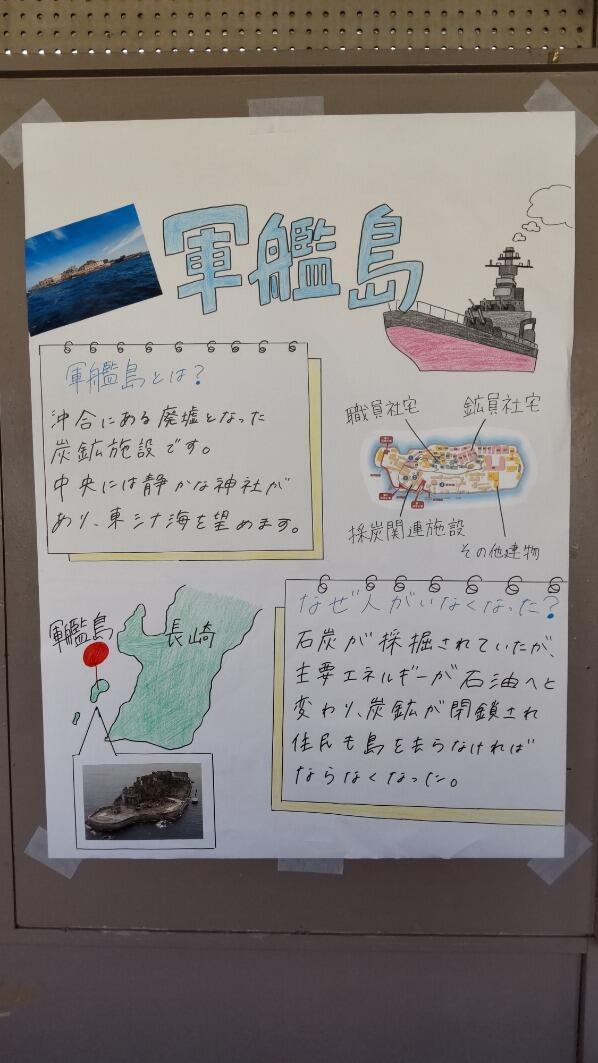 軍艦島
軍艦島とは?
沖合にある廃墟となった
炭鉱施設です。
中央には静かな神社が
あり、東シナ海を望めます。
職員社宅
鉱員社宅
採炭関連施設
その他建物
軍艦島
長崎
なぜ人がいなくなった?
石炭が採掘されていたが、
主要エネルギーが石油へと
変わり、炭鉱が閉鎖され
住民も島を去らなければ
ならなくなった。